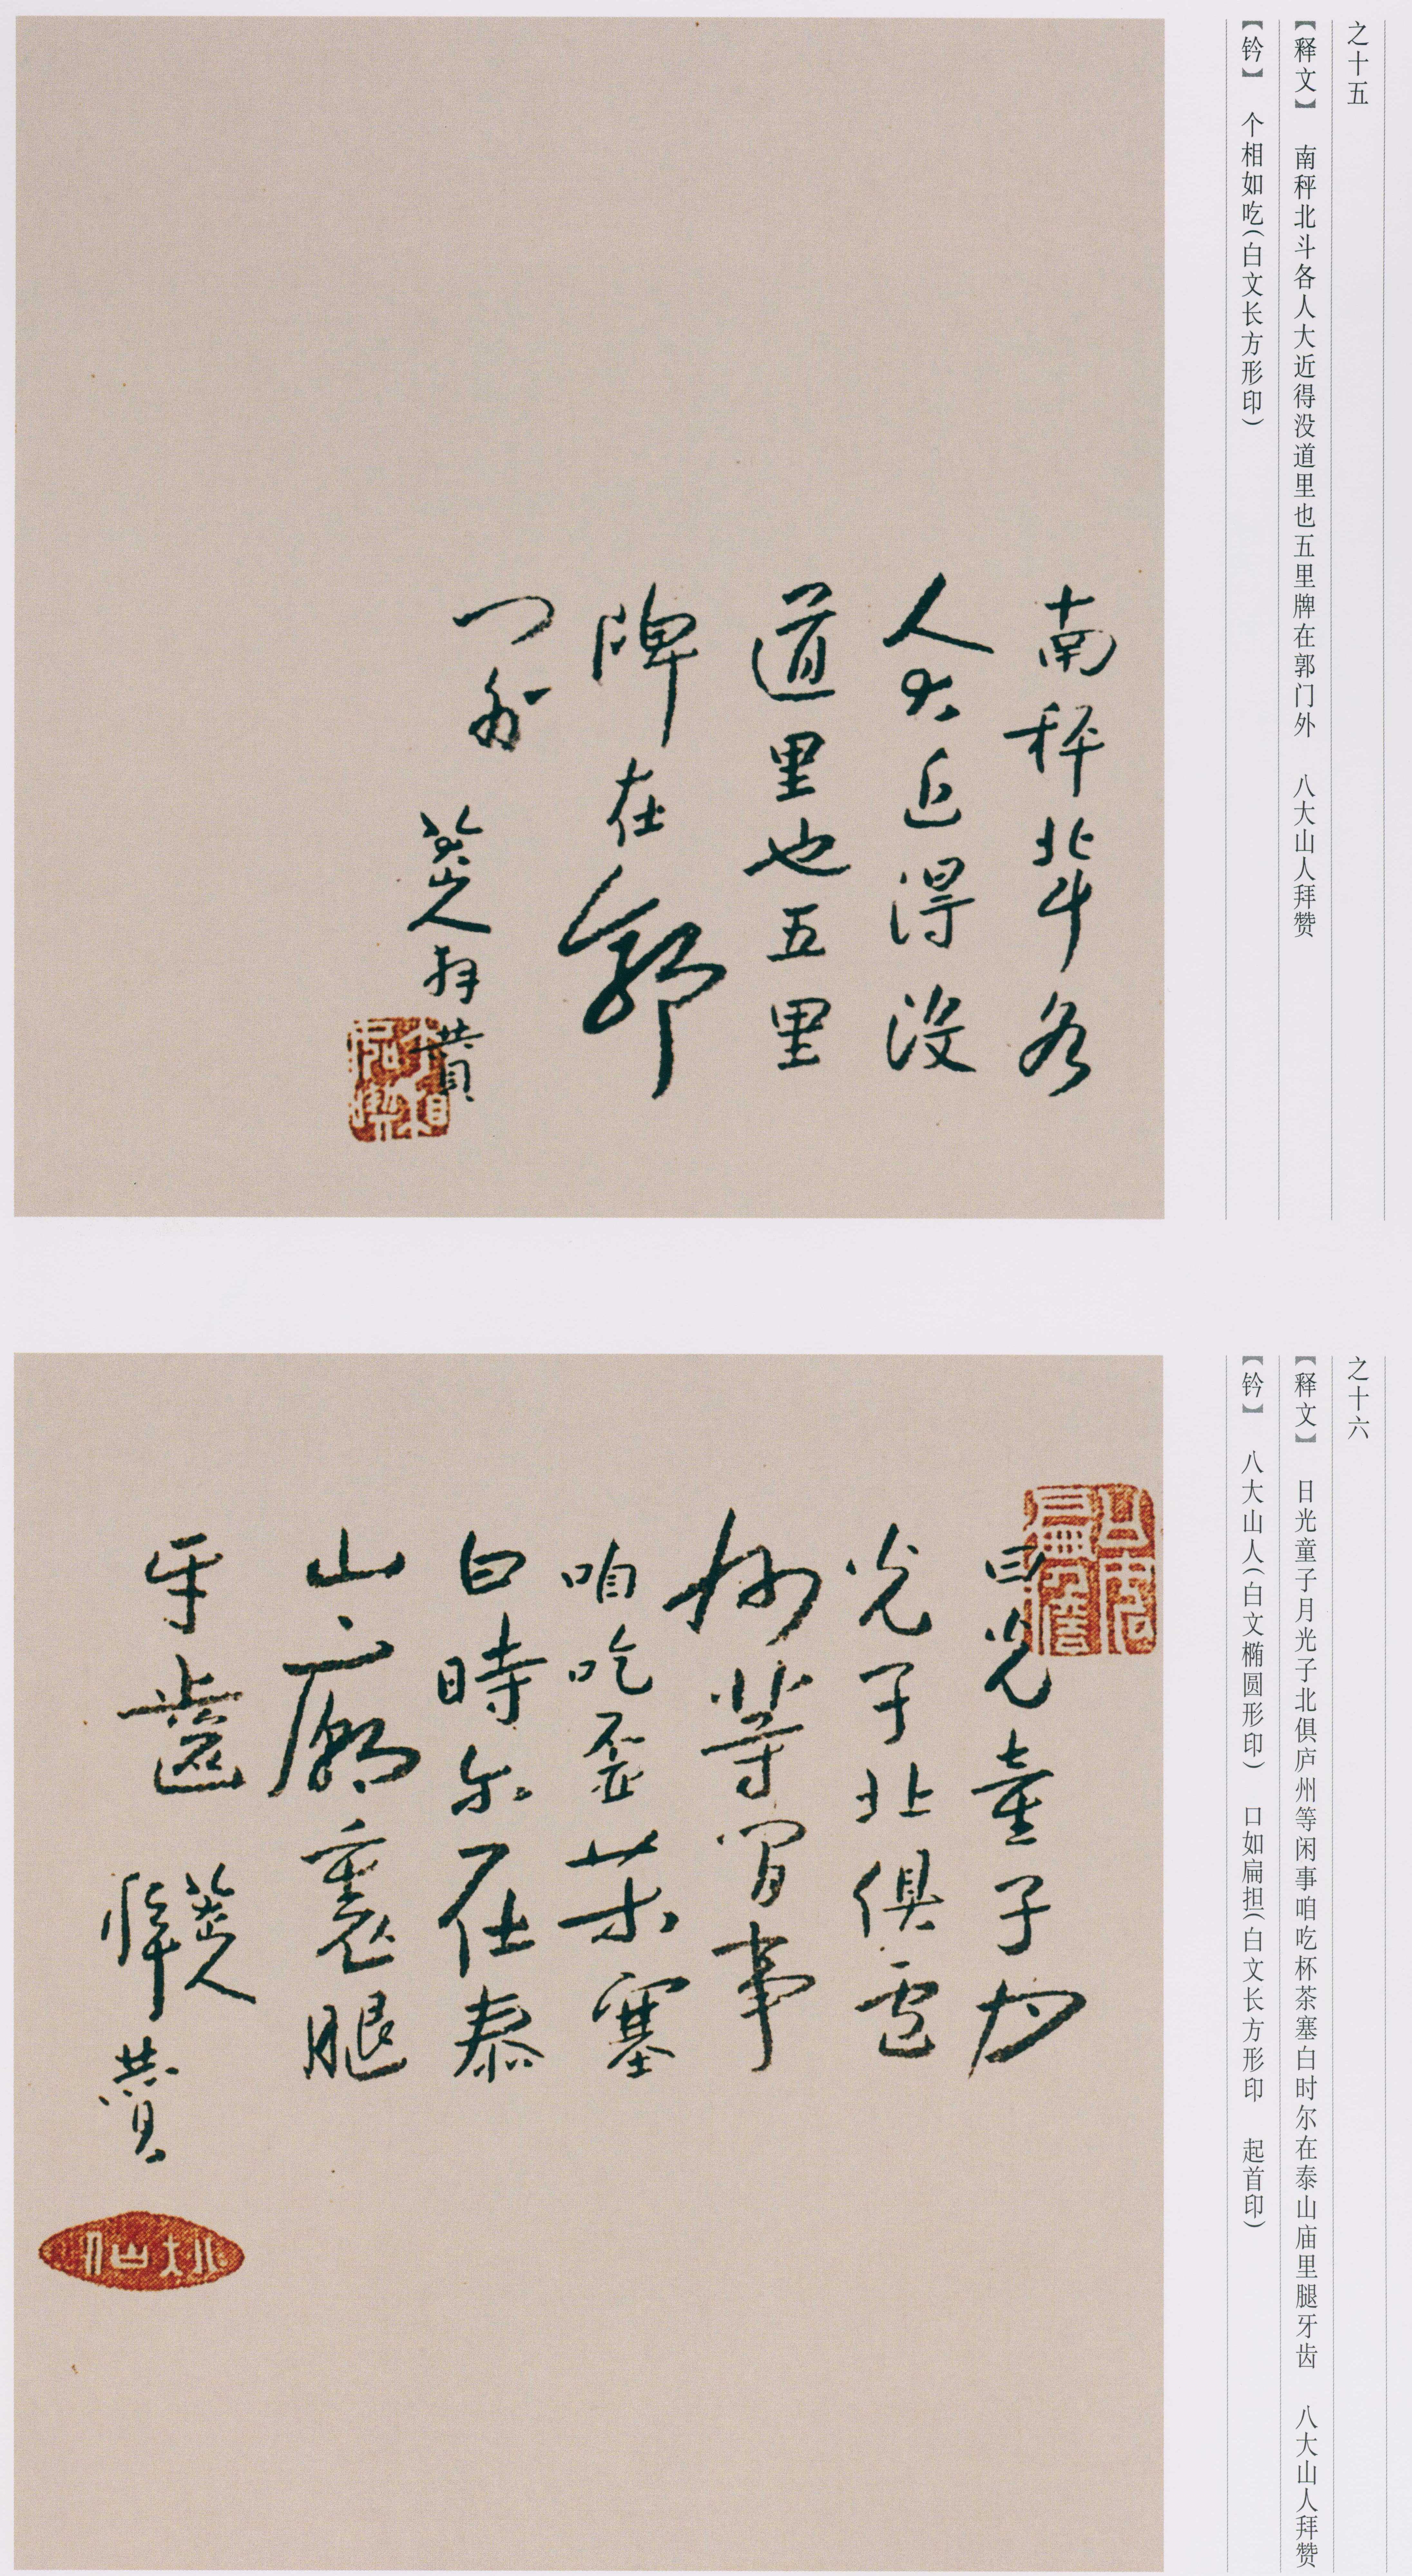 之十五
【释文】 南秤北斗各人大近得没道里也五里牌在郭门外 八大山人拜赞
【钤】 个相如吃(白文长方形印)
南秤北斗各
人大近得没
道里也五里
牌在郭
门外
八大山人拜賛
之十六
【释文】 日光童子月光子北俱庐州等闲事咱吃杯茶塞白时尔在泰山庙里腿牙齿 八大山人拜赞
【钤】 八大山人(白文椭圆形印) 口如扁担(白文长方形印 起首印)
日光童子月
光子北俱
州等閒事
咱吃盃茶塞
白時尔在泰
山廟裏腿
牙齒
八大山人拜賛
八大山人